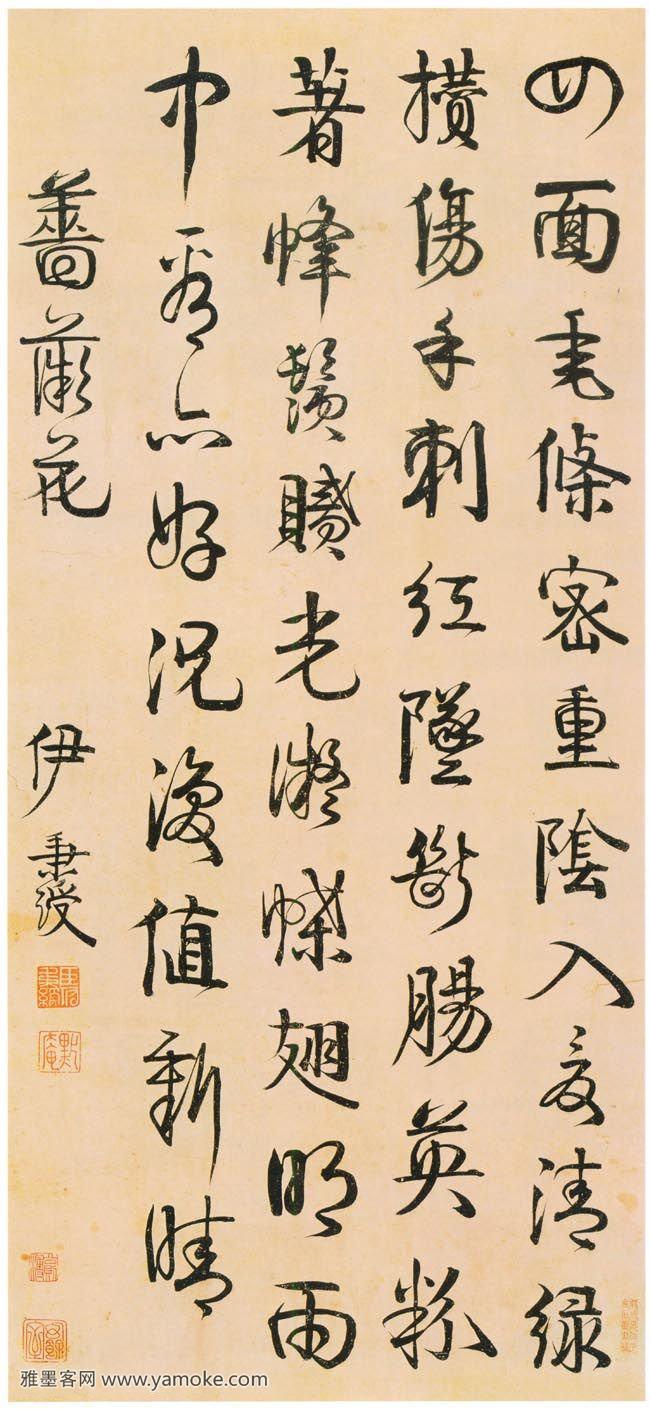 四面垂條密重陰入夏清綠
攢傷手刺紅墜斷腸英粉
著蜂鬚膩光凝蝶翅明雨
中看亦好況復值新晴
薔薇花 伊秉綬
雅墨客网 www.yamoke.com